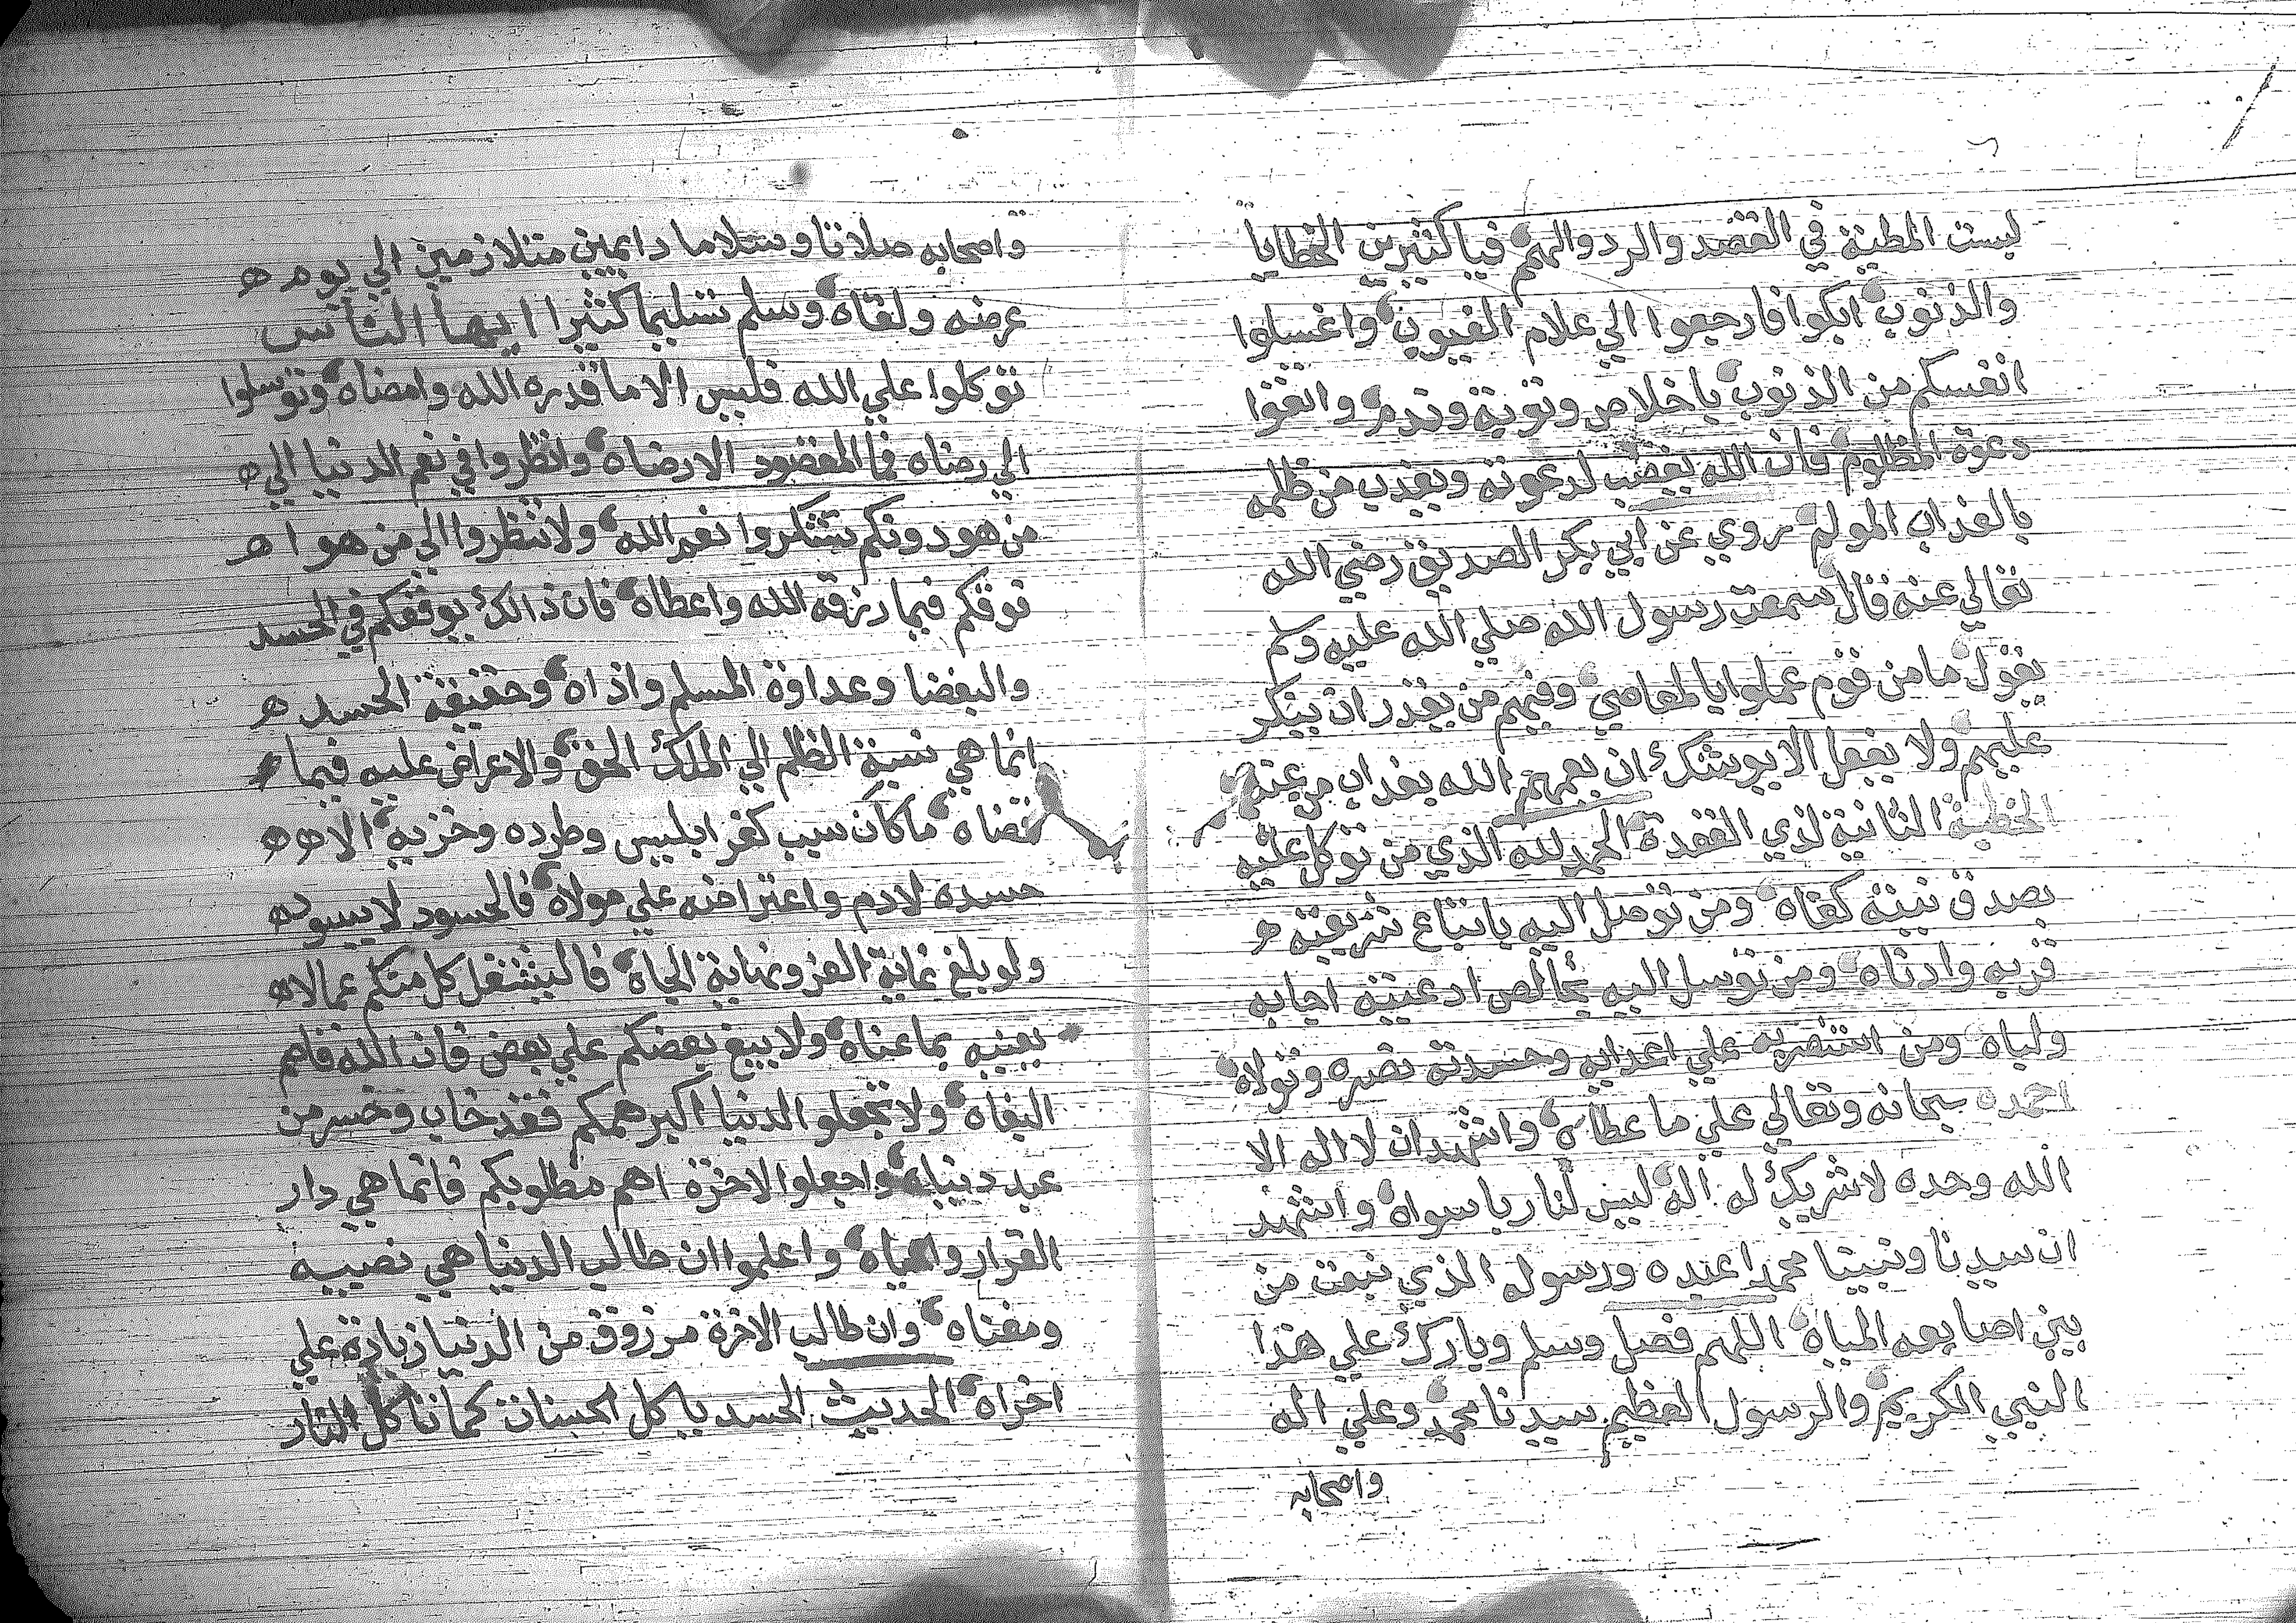 ليست المطية في القصد والرد والهم فيا كثيرين الخطايا
والذنوب ابكوا فارجعوا الي علام الغيوب واغسلوا
انفسكم من الذنوب باخلاص وتوبة وندم واتقوا
دعوة المظلوم فان الله يغضب لدعوته ويعذب من ظلمه
بالعذاب المولم روي عن ابي بكر الصديق رضي الله
تعالي عنه قال سمعت رسول الله صلي الله عليه وسلم
يقول ما من قوم عملوا بالمعاصي وفيهم من يقدر ان ينكر
عليهم ولا يفعل الا يوشك ان يعمهم الله بعذاب من عنده
الخطبة الثانية لذي القعدة الحمد لله الذي من توكل عليه
بصدق نيته كفاه ومن توصل اليه باتباع شريعته
قربه وادناه ومن توسل اليه بخالص ادعيته اجابه
ولباه ومن استنصر به علي اعدايه وحسدته نصره وتولاه
احمده سبحانه وتعالي علي ما عطاه واشهد ان لا اله الا
الله وحده لا شريك له اله ليس لنا ربا سواه واشهد
ان سيدنا ونبينا محمدا عبده ورسوله الذي نبعت من
بين اصابعه المياه اللهم فصل وسلم وبارك علي هذا
النبي الكريم والرسول العظيم سيدنا محمد وعلي اله
واصحابه
واصحابه صلاتا وسلاما دايمين متلازمين الي يوم
عرضه ولقاه وسلم تسليما كثيرا ايها الناس
توكلوا علي الله فليس الا ما قدره الله وامضاه وتوسلوا
الي رضاه فما المقصود الا رضاه وانظروا في نعم الدنيا الي
من هو دونكم تشكروا نعم الله ولا تنظروا الي من هو ا
فوقكم فيما رزقه الله واعطاه فان ذالك يوقعكم في الحسد
والبغضا وعداوة المسلم واذاه وحقيقة الحسد
انما هي نسبة الظلم الي الملك الحق والاعراض عليه فيما
قضاه ما كان سبب كفر ابليس وطرده وخزيه الا
حسده لادم واعتراضه علي مولاه فالحسود لا يسود
ولو بلغ غاية العز ونهاية الجاه فاليشتغل كل منكم عما لا
يعنيه بما عناه ولا يبغ بعضكم علي بعض فان الله قاهم
البغاه ولا تجعلو الدنيا اكبر همكم فقد خاب وخسر من
عبد دنياه واجعلوا الاخرة اهم مطلوبكم فانما هي دار
القرار والحياه واعلموا ان طالب الدنيا هي نصيبه
ومغناه وان طالب الاخرة مرزوق من الدنيا زيادة علي
اخراه الحديث الحسد ياكل الحسنات كما تاكل النار